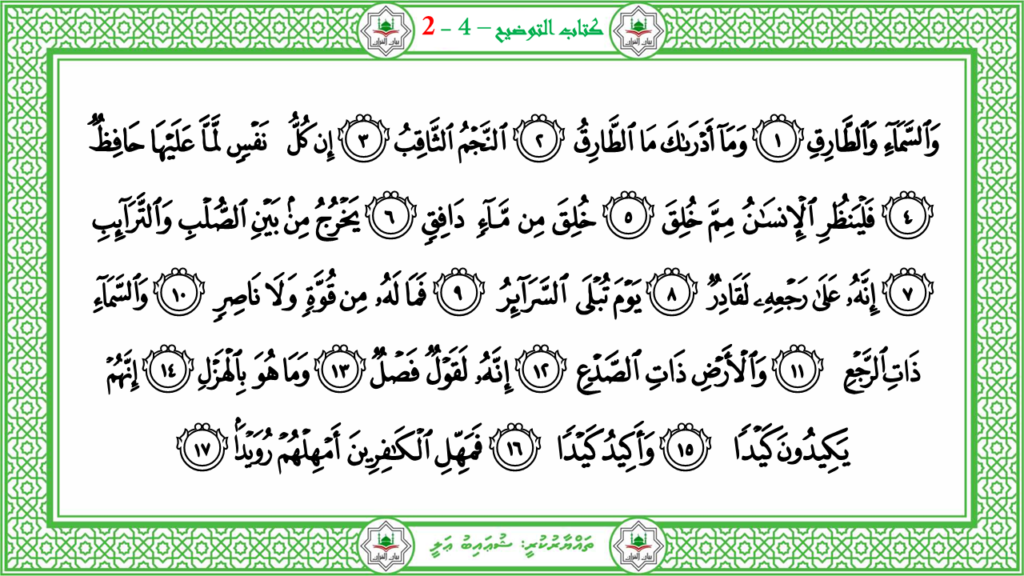 كتاب التوضيح – 4 - 2
وَٱلسَّمَآءِ وَٱلطَّارِقِ ١ وَمَآ أَدْرَىٰكَ مَا ٱلطَّارِقُ ٢ ٱلنَّجْمُ ٱلثَّاقِبُ ٣ إِن كُلُّ نَفْسٍ لَّمَّا عَلَيْهَا حَافِظٌ
٤ فَلْيَنظُرِ ٱلْإِنسَـٰنُ مِمَّ خُلِقَ ٥ خُلِقَ مِن مَّآءٍ دَافِقٍ ٦ يَخْرُجُ مِنۢ بَيْنِ ٱلصُّلْبِ وَٱلتَّرَآئِبِ
٧ إِنَّهُۥ عَلَىٰ رَجْعِهِۦ لَقَادِرٌ ٨ يَوْمَ تُبْلَى ٱلسَّرَآئِرُ ٩ فَمَا لَهُۥ مِن قُوَّةٍ وَلَا نَاصِرٍ ١٠ وَٱلسَّمَآءِ
ذَاتِ ٱلرَّجْعِ ١١ وَٱلْأَرْضِ ذَاتِ ٱلصَّدْعِ ١٢ إِنَّهُۥ لَقَوْلٌ فَصْلٌ ١٣ وَمَا هُوَ بِٱلْهَزْلِ ١٤ إِنَّهُمْ
يَكِيدُونَ كَيْدًا ١٥ وَأَكِيدُ كَيْدًا ١٦ فَمَهِّلِ ٱلْكَـٰفِرِينَ أَمْهِلْهُمْ رُوَيْدًۢا ١٧
ތައްޔާރުކުރީ: ޝުޢައިބު ޢަލީ